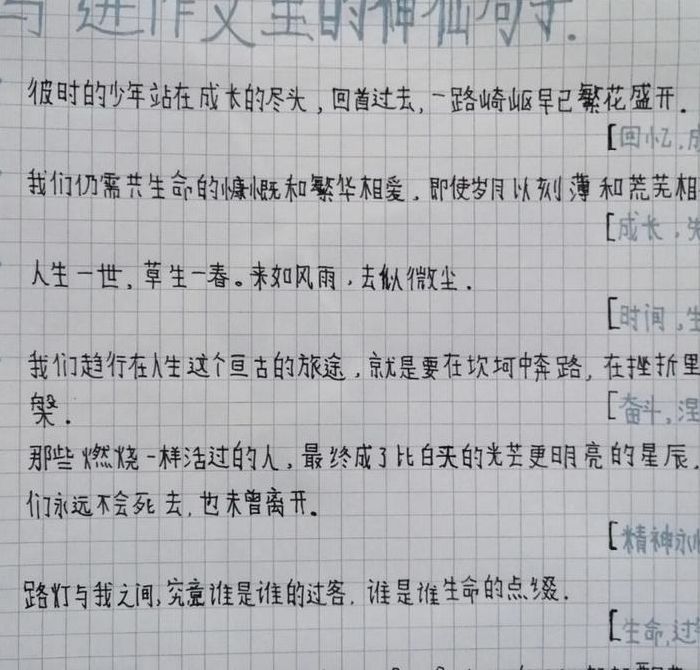 写进作文里的神仙句子.
彼时的少年站在成长的尽头，回首过去，一路崎岖早已繁花盛开.
[回忆,成
我们仍需共生命的慷慨和繁华相爱，即使岁月以刻薄和荒芜相
[成长，失
人生一世，草生一春。来如风雨，去似微尘.
[时间，生
我们趋行在人生这个亘古的旅途，就是要在坎坷中奔跑，在挫折里
槃.
[奋斗,涅
那些燃烧一样活过的人，最终成了比白天的光芒更明亮的星辰.
们永远不会死去，也未曾离开。
[精神永
路灯与我之间,究竟谁是谁的过客，谁是谁生命的点缀.
[生命,过